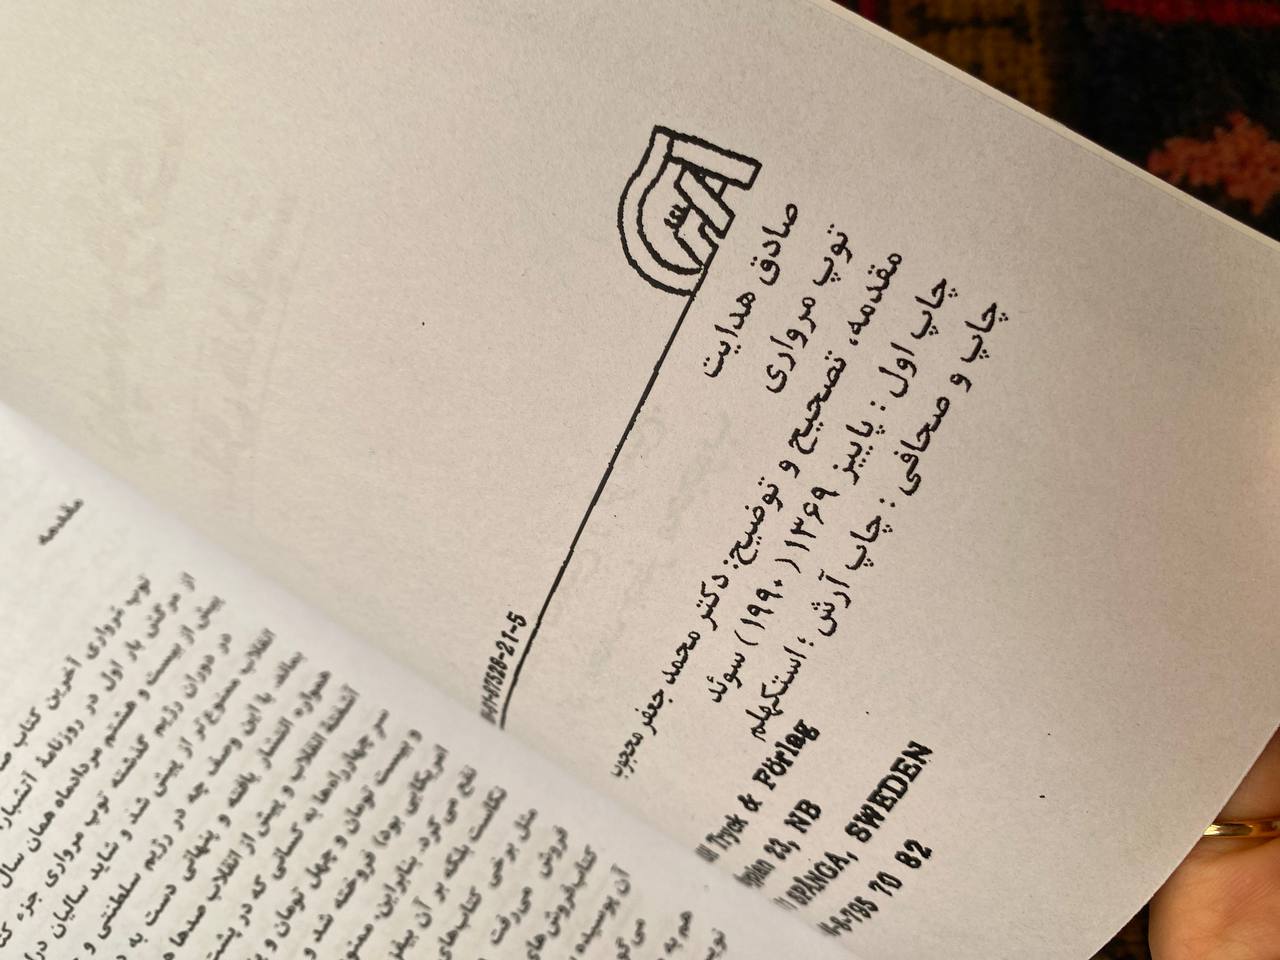 صادق هدایت
توپ مرواری
مقدمه، تصحیح و توضیح: دکتر محمد جعفر محجوب
چاپ اول : پاییز ۱۳۶۹ (۱۹۹۰) سوئد
چاپ و صحافی : چاپ آرش ؛ استکهلم
Tryck & Förlag
23, NB
SPÅNGA, SWEDEN
795 70 82
87528-21-5
مقدمه
توپ مرواری آخرین کتاب
از مرگش بار اول در روزنامهٔ آتشبار
پیش از بیست و هشتم مردادماه همان سال
در دوران رژیم گذشته توپ مرواری جزء
انقلاب ممنوع‌تر از پیش شد و شاید سالیان
بماند. با این وصف چه در رژیم سلطنتی و
همواره انتشار یافته و پنهانی دست به
آشفتهٔ انقلاب و پیش از انقلاب صدها
سر چهارراه‌ها به کسانی که در پشت
و بیست تومان و چهل تومان و
امریکایی بود) فروخته شد و
نفع می‌کرد. بنابراین، ممنوع
نگاست بلکه بر آن بیفزود
مثل برخی کتاب‌های
فروش می‌رفت
کتاب‌فروش‌های
آن پوسیده
می‌گو
هم به
نویس